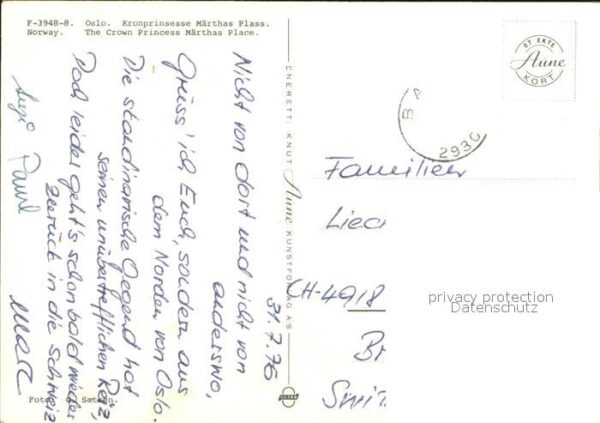 F-3948-8. Oslo. Kronprinsesse Märthas Plass.
Norway. The Crown Princess Märthas Place.
Nicht von dort und nicht von
anderswo,
Grüss' ich Euch, sondern aus
dem Norden von Oslo.
Die skandinavische Gegend hat
seinen unübertrefflichen Reiz,
Doch leider geht's schon bald wieder
zurück in die Schweiz
Marc
Paul
31.7.76
ENERETT: KNUT Aune KUNSTFORLAG A.S
ET EKTE
Aune
KORT
2930
Familien
CH-4918
privacy protection
Datenschutz
Foto: O. Sætren.